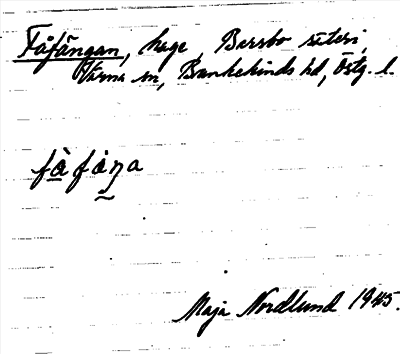 Fåfängan, hage, Bersbo säteri,
Värna sn, Bankekinds hd, Östg. l.
fàfàŋa
Maja Nordlund 1945.